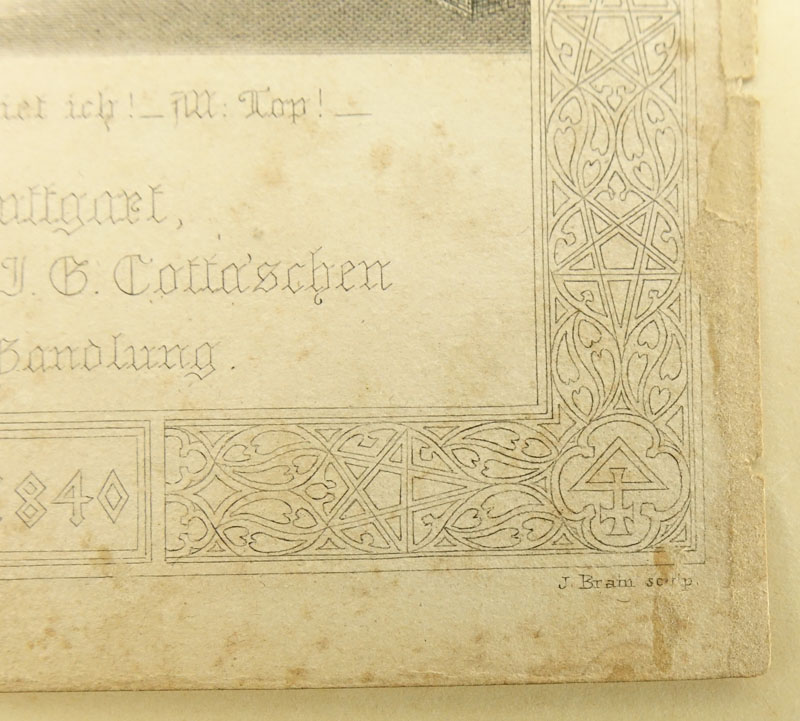 iet ich! — M: Top! —
uttgart,
J. G. Cotta'schen
Handlung.
1840
J. Brain sculp.